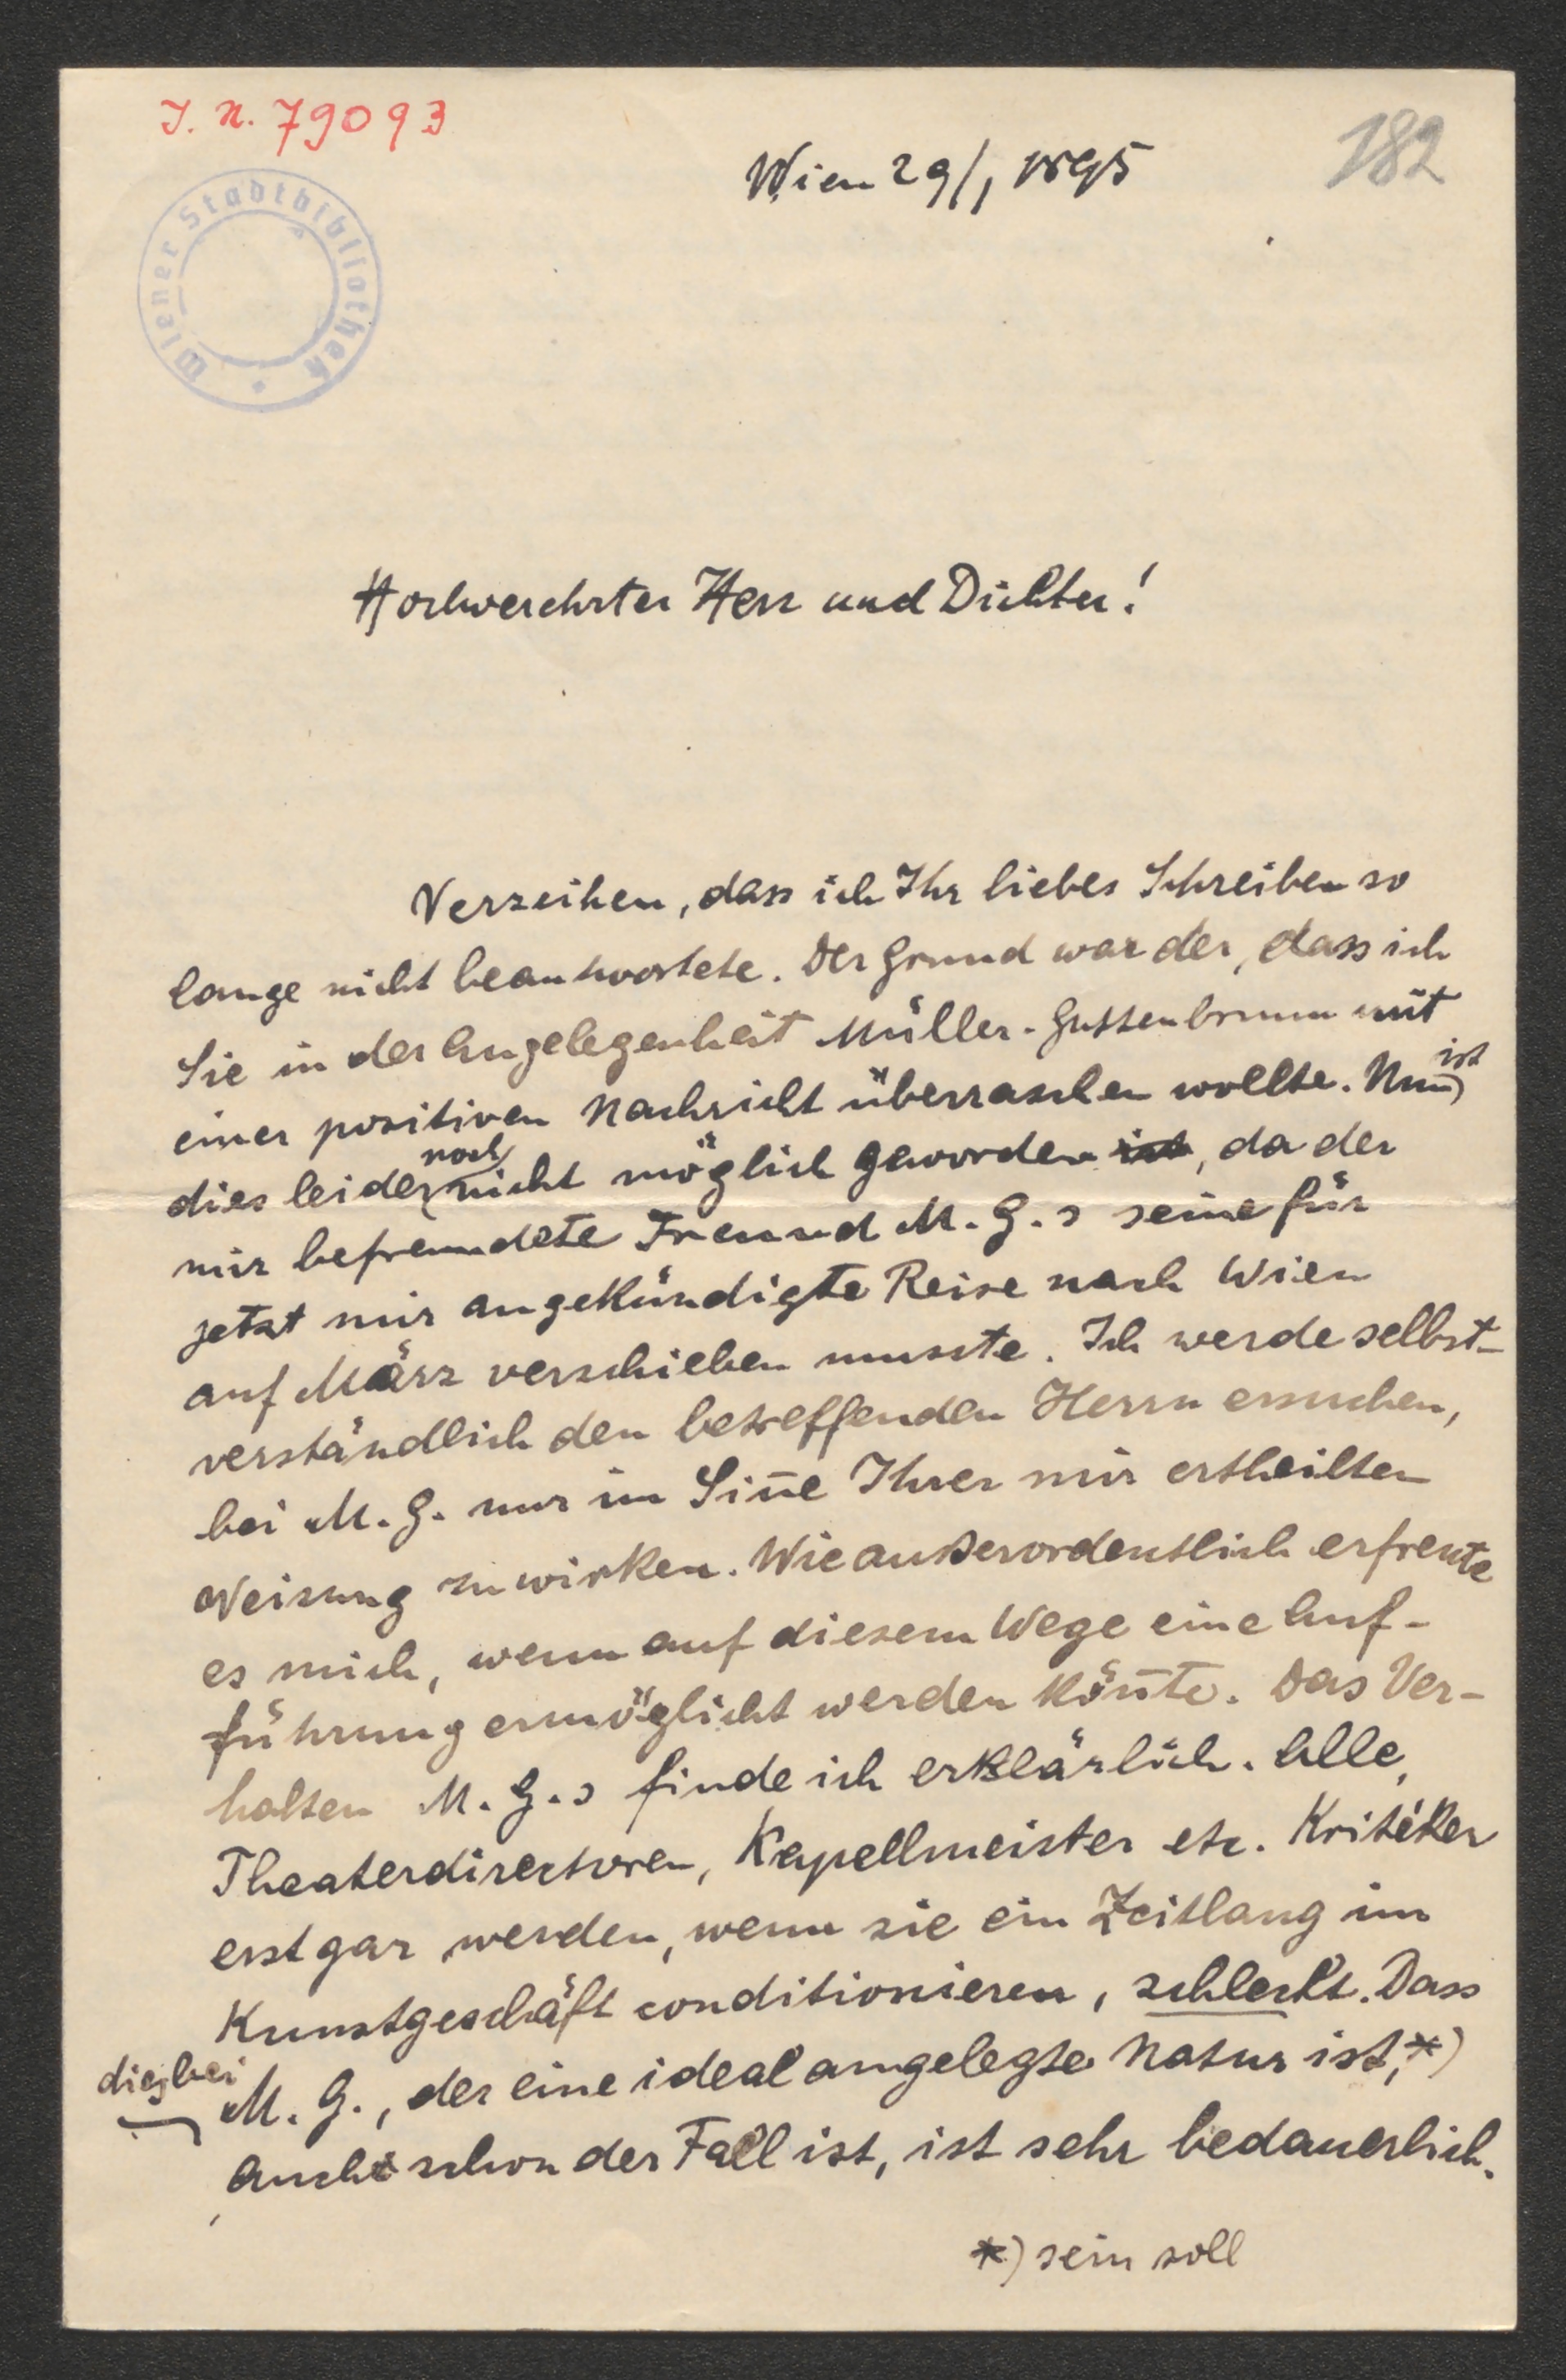 I. N. 79093
182
Wien 29/1 1895
Wiener Stadtbibliothek
Hochverehrter Herr und Dichter!
Verzeihen, dass ich Ihr liebes Schreiben so
lange nicht beantwortete. Der Grund war der, dass ich
Sie in der Angelegenheit Müller-Guttenbrunn mit
einer positiven Nachricht überraschen wollte. Nun ist
dies leider noch nicht möglich geworden ist, da der
mir befreundete Freund M. G.s seine für
jetzt mir angekündigte Reise nach Wien
auf März verschieben musste. Ich werde selbst-
verständlich den betreffenden Herrn ersuchen,
bei M. G. nur im Sin̄e Ihrer mir ertheilten
Weisung zu wirken. Wie außerordentlich erfreute
es mich, wenn auf diesem Wege eine Auf-
führung ermöglicht werden kön̄te. Das Ver-
halten M. G.s finde ich erklärlich. Alle,
Theaterdirectoren, Kapellmeister etc. Kritiker
erst gar werden, wenn sie ein Zeitlang im
Kunstgeschäft conditionieren, schlecht. Dass
dies bei M. G., der eine ideal angelegte Natur ist,*)
auch schon der Fall ist, ist sehr bedauerlich.
*) sein soll